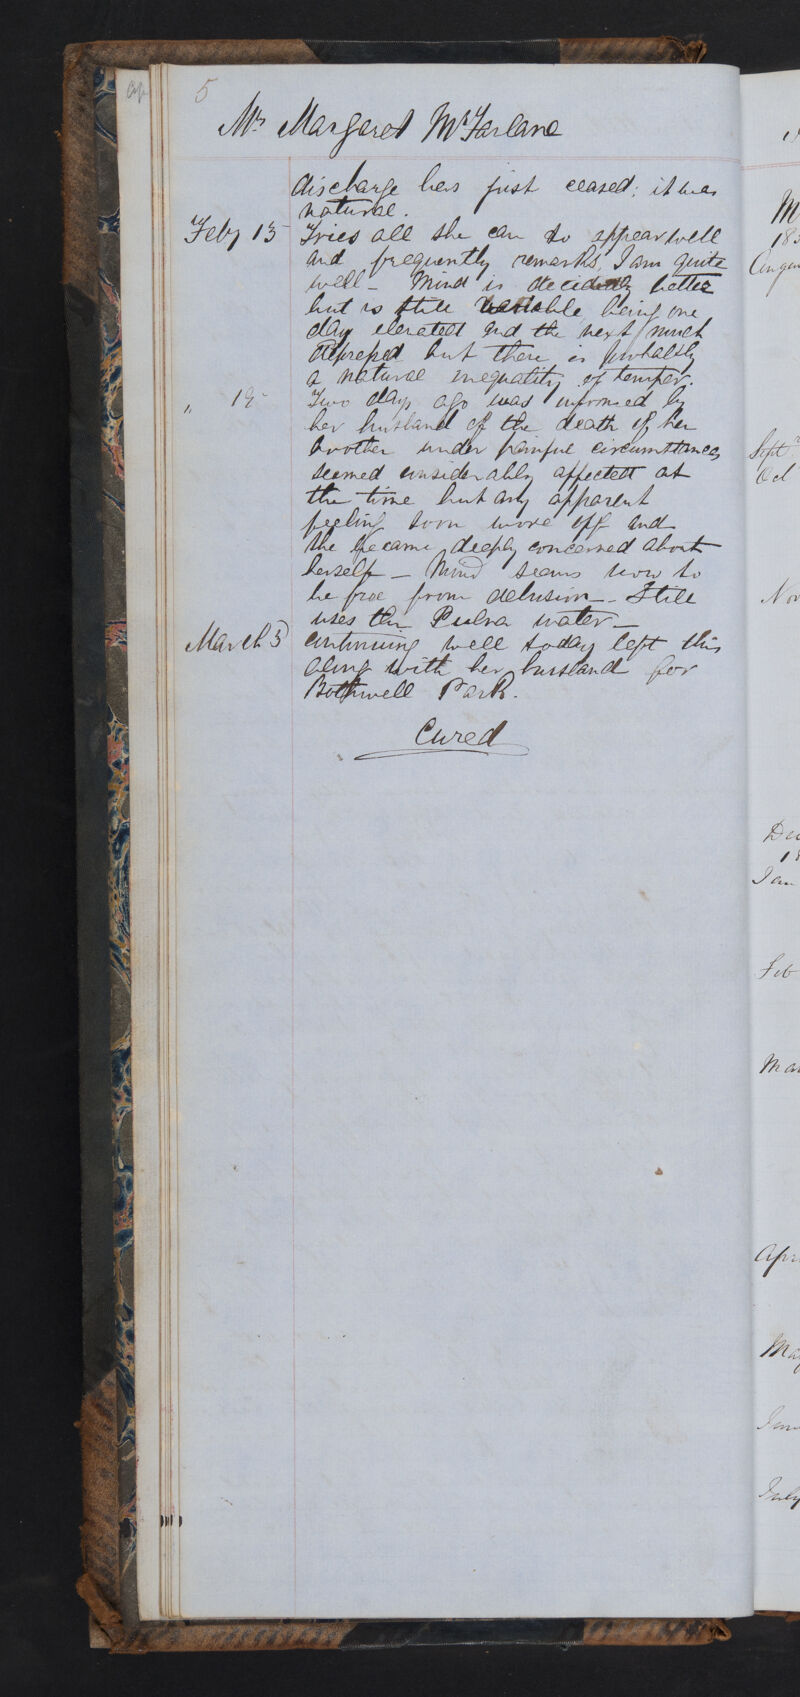 5
Mrs Margaret McFarlane
discharge has just ceased; it was
natural.
Feby 13 Tries all she can to appear well
and frequently remarks, I am quite
well – Mind is decidedly better
but is still variable being one
day elevated and the next much
depressed but there is probably
a natural inequality of temper.
" 19 Two days ago was informed by
her husband of the death of her
brother under painful circumstances
seemed considerably affected at
the time but any apparent
feeling soon wore off and
she became deeply concerned about
herself – Mind seems now to
be free from delusion – Still
uses the water –
March 3 Continuing well today left this
along with her husband for
Bothwell Park.
Cured
Sept
Oct
Nov
Jan
Feb
Mar
Apr
May
July